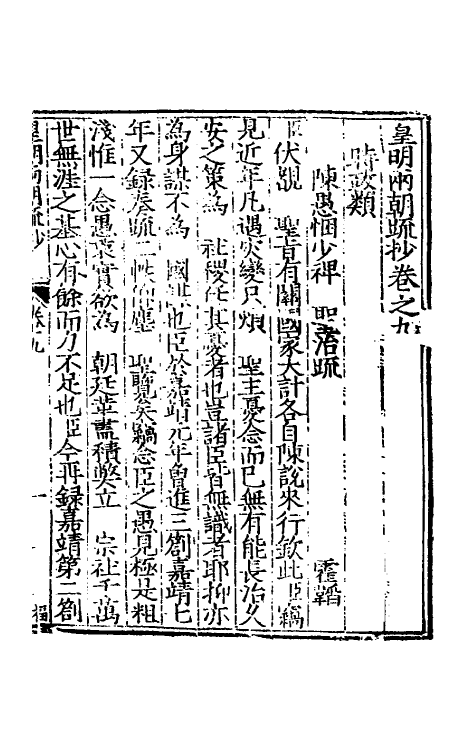 皇明兩朝疏抄卷之九
時政類
陳愚悃少裨 聖治疏 霍韜
臣伏覩 聖旨有關國家大計各自陳說來行欽此臣竊
見近年凡遇災變只煩 聖主憂念而已無有能長治久
安之策為 社稷任其憂者也豈諸臣皆無識者耶抑亦
為身謀不為 國謀也臣於嘉靖元年曾進三劄嘉靖七
年又錄奏疏二帙仰塵 聖覽矣竊念臣之愚見極是粗
淺惟一念愚衷實欲為 朝廷革盡積獘立 宗社千萬
世無涯之基心有餘而力不足也臣今再錄嘉靖第二劄
皇明兩朝疏抄 卷九 一